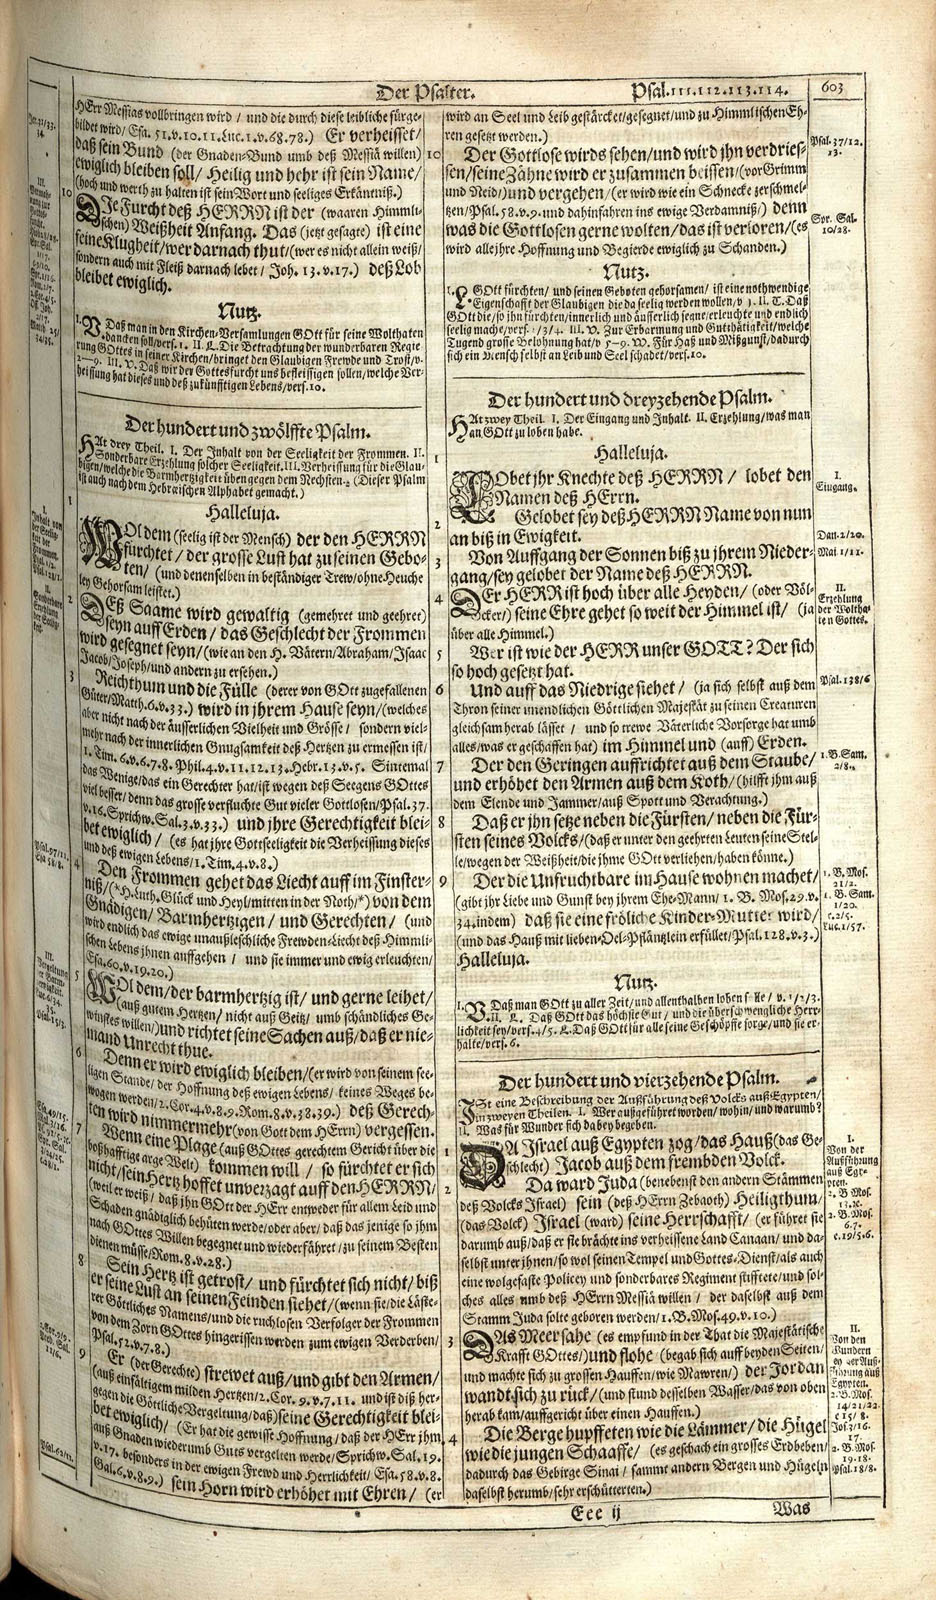 Der Psalter. Psal. 111. 112. 113. 114. 603
HErr Messias vollbringen wird / und die durch diese leibliche fürge-
bildet wird / Esa. 51. v. 10. 11. Luc. 1. v. 68. 78.) Er verheisset /
daß sein Bund (der Gnaden-Bund umb deß Messiä willen)
ewiglich bleiben soll / Heilig und hehr ist sein Name /
(hoch und werth zu halten ist sein Wort und seeliges Erkäntniß.)
10 DJe Furcht deß HERRN ist der (waaren Himmli-
schen) Weißheit Anfang. Das (jetzt gesagte) ist eine
feine Klugheit / wer darnach thut / (wer es nicht allein weiß /
sondern auch mit Fleiß darnach lebet / Joh. 13. v. 17.) deß Lob
bleibet ewiglich.
Nutz.
I. V. Daß man in den Kirchen-Versamlungen GOtt für seine Wolthaten
dancken soll / vers. 1. II. L. Die Betrachtung der wunderbaren Regie
rung GOttes in seiner Kirchen / bringet den Glaubigen Frewde und Trost / v.
2—9. III. V. Daß wir der Gottesfurcht uns befleissigen sollen / welche Ver-
heissung hat dieses und deß zukünfftigen Lebens / vers. 10.
Der hundert und zwölffte Psalm.
HAt drey Theil. I. Der Inhalt von der Seeligkeit der Frommen. II.
Sonderbare Erzehlung solcher Seeligkeit. III. Verheissung für die Glau-
bigen / welche die Barmhertzigkeit üben gegen dem Nechsten. (Dieser Psalm
ist auch nach dem Hebraischen Alphabet gemacht.)
1 Halleluja.
WOl dem (seelig ist der Mensch) der den HERRN
fürchtet / der grosse Lust hat zu seinen Gebo-
ten / (und denenselben in beständiger Trew / ohne Heuche
ley Gehorsam leistet.)
2 DEß Saame wird gewaltig (gemehret und geehret)
seyn auff Erden / das Geschlecht der Frommen
wird gesegnet seyn / (wie an den H. Vätern / Abraham / Isaac
Jacob / Joseph / und andern zu ersehen.)
3 Reichthum und die Fülle (derer von GOtt zugefallenen
Güter / Matth. 6. v. 33.) wird in jhrem Hause seyn / (welches
aber nicht nach der äusserlichen Vielheit und Grösse / sondern viel-
mehr nach der innerlichen Gnugsamkeit deß Hertzen zu ermessen ist /
1. Tim. 6. v. 6. 7. 8. Phil. 4. v. 11. 12. 13. Hebr. 13. v. 5. Sintemal
das Wenige / das ein Gerechter hat / ist wegen deß Seegens GOttes
viel besser / denn das grosse verfluchte Gut vieler Gottlosen / Psal. 37.
v. 16. Sprichw. Sal. 3. v. 33.) und jhre Gerechtigkeit blei-
bet ewiglich / (es hat jhre Gottseeligkeit die Verheissung dieses
und deß ewigen Lebens / 1. Tim. 4. v. 8.)
4 Den Frommen gehet das Liecht auff im Finster-
niß / (*H. Luth. Glück und Heyl / mitten in der Noth /*) von dem
Gnädigen / Barmhertzigen / und Gerechten / (und
wird endlich das ewige unaußleschliche Frewden-Liecht deß Himmli-
schen Lebens jhnen auffgehen / und sie immer und ewig erleuchten /
Esa. 60. v. 19. 20.)
5 WOl dem / der barmhertzig ist / und gerne leihet /
(auß gutem Hertzen / nicht auß Geitz / umb schändliches Ge-
winstes willen /) und richtet seine Sachen auß / daß er nie-
mand Unrecht thue.
6 Denn er wird ewiglich bleiben / (er wird von seinem see-
ligen Stande / der Hoffnung deß ewigen Lebens / keines Weges be-
wogen werden / 2. Cor. 4. v. 8. 9. Rom. 8. v. 38. 39.) deß Gerech-
ten wird nimmermehr (von Gott dem HErrn) vergessen.
7 Wenn eine Plage (auß GOttes gerechtem Gericht über die
boßhafftige arge Welt) kommen will / so fürchtet er sich
nicht / sein Hertz hoffet unverzagt auff den HERRN /
(weil er weiß / daß jhn GOtt der HErr entweder für allem Leid und
Schaden gnädiglich behüten werde / oder aber / daß das jenige so jhm
nach GOttes Willen begegnet und wiederfähret / zu seinem Besten
dienen müsse / Rom. 8. v. 28.)
8 Sein Hertz ist getrost / und fürchtet sich nicht / biß
er seine Lust an seinen Feinden siehet / (wenn sie / die Läste-
rer Göttliches Namens / und die ruchlosen Verfolger der Frommen
von dem Zorn GOttes hingerissen werden zum ewigen Verderben /
Psal. 52. v. 7. 8.)
9 Er (der Gerechte) strewet auß / und gibt den Armen /
(auß einfältigem milden Hertzen / 2. Cor. 9. v. 7. 11. und ist diß her-
gegen die Göttliche Vergeltung / daß) seine Gerechtigkeit blei-
bet ewiglich / (Er hat die gewisse Hoffnung / daß der HErr jhm
auß Gnaden wiederumb Guts vergelten werde / Sprichw. Sal. 19.
v. 17. besonders in der ewigen Frewd und Herrlichkeit / Esa. 58. v. 8.
Gal. 6. v. 8. 9.) sein Horn wird erhöhet mit Ehren / (er
wird an Seel und Leib gestärcket / gesegnet / und zu Himmlischen Eh-
ren gesetzt werden.)
10 Der Gottlose wirds sehen / und wird jhn verdries-
sen / seine Zähne wird er zusammen beissen / (vor Grimm
und Neid /) und vergehen / (er wird wie ein Schnecke zerschmel-
tzen / Psal. 58. v. 9. und dahinfahren ins ewige Verdamniß /) denn
was die Gottlosen gerne wolten / das ist verloren / (es
wird alle jhre Hoffnung und Begierde ewiglich zu Schanden.)
Nutz.
I. L. GOtt fürchten / und seinen Geboten gehorsamen / ist eine nothwendige
Eigenschafft der Glaubigen die da seelig werden wollen / v 1. II. T. Daß
GOtt die / so jhn fürchten / innerlich und äusserlich segne / erleuchte und endlich
seelig mache / vers. 1 / 3 / 4. III. V. Zur Erbarmung und Gutthätigkeit / welche
Tugend grosse Belohnung hat / v 5—9. W. Für Haß und Mißgunst / dadurch
sich ein Mensch selbst an Leib und Seel schadet / vers. 10.
Der hundert und dreyzehende Psalm.
HAt zwey Theil. I. Der Eingang und Inhalt. II. Erzehlung / was man
an GOtt zu loben habe.
1 Halleluja.
LObet jhr Knechte deß HERRN / lobet den
Namen deß HErrn.
2 Gelobet sey deß HERRN Name von nun
an biß in Ewigkeit.
3 Von Auffgang der Sonnen biß zu jhrem Nieder-
gang / sey gelobet der Name deß HERRN.
4 DEr HERR ist hoch über alle Heyden / (oder Völ-
cker /) seine Ehre gehet so weit der Himmel ist / (ja
über alle Himmel.)
5 Wer ist wie der HERR unser GOTT? Der sich
so hoch gesetzt hat.
6 Und auff das Niedrige siehet / (ja sich selbst auß dem
Thron seiner unendlichen Göttlichen Majestät zu seinen Creaturen
gleichsam herab lässet / und so trewe Väterliche Vorsorge hat umb
alles / was er geschaffen hat) im Himmel und (auff) Erden.
7 Der den Geringen auffrichtet auß dem Staube /
und erhöhet den Armen auß dem Koth / (hilfft jhm auß
dem Elende und Jammer / auß Spott und Verachtung.)
8 Daß er jhn setze neben die Fürsten / neben die Für-
sten seines Volcks / (daß er unter den geehrten Leuten seine Stel-
le / wegen der Weißheit / die jhme GOtt verliehen / haben könne.)
9 Der die Unfruchtbare im Hause wohnen machet /
(gibt jhr Liebe und Gunst bey jhrem Ehe-Mann / 1. B. Mos. 29. v.
34. indem) daß sie eine fröliche Kinder-Mutter wird /
(und das Hauß mit lieben Oel-Pfläntzlein erfüllet / Psal. 128. v. 3.)
Halleluja.
Nutz.
I. V. Daß man GOtt zu aller Zeit / und allenthalben loben solle / v. 1 / 2 / 3.
II. L. Daß GOtt das höchste Gut / und die überschwengliche Herr-
lichkeit sey / vers. 4 / 5. L. Daß GOtt für alle seine Geschöpffe sorge / und sie er-
halte / vers. 6.
Der hundert und vierzehende Psalm.
JSt eine Beschreibung der Außführung deß Volcks auß Egypten /
in zweyen Theilen. I. Wer außgeführet worden / wohin / und warumb?
II. Was für Wunder sich dabey begeben.
1 DA Israel auß Egypten zog / das Hauß (das Ge-
schlecht) Jacob auß dem frembden Volck.
2 Da ward Juda (benebenst den andern Stämmen
deß Volcks Israel) sein (deß HErrn Zebaoth) Heiligthum /
(das Volck) Israel (ward) seine Herrschafft / (er führet sie
darumb auß / daß er sie brächte ins verheissene Land Canaan / und da-
selbst unter jhnen / so wol seinen Tempel und Gottes-Dienst / als auch
eine wolgefaste Policey und sonderbares Regiment stifftete / und sol-
ches alles umb deß HErrn Messiä willen / der daselbst auß dem
Stamm Juda solte geboren werden / 1. B. Mos. 49. v. 10.)
3 DAs Meer sahe (es empfund in der That die Majestätische
Krafft GOttes /) und flohe (begab sich auff beyden Seiten /
und machte sich zu grossen Hauffen / wie Mawren /) der Jordan
wandt sich zu rück / (und stund desselben Wasser / das von oben
herab kam / auffgericht über einen Hauffen.)
4 Die Berge hupffeten wie die Lämmer / die Hügel
wie die jungen Schaaffe / (es geschach ein grosses Erdbeben /
dadurch das Gebirge Sinai / sammt andern Bergen und Hügeln
daselbst herumb / sehr erschütterten.)
Eee ij Was
Psal. 37/12.
13.
Spr. Sal.
10/28.
I.
Eingang.
Dan. 2/20.
Mal 1/11.
II.
Erzehlung
der Woltha
ten Gottes.
Psal. 138/6
1. B. Sam.
2/8.
1. B. Mos.
21/2.
1. B. Sam.
1/20.
c. 2/5.
Luc. 1/57.
I.
Von der
Außführung
auß Egy-
pten.
2. B Mos.
2. B. Mos.
6. 7.
c. 19/5. 6.
II.
Von den
Wundern
Egypten.
2. B. Mos.
14/21/22.
c 15/8.
Jos. 3/16.
17.
2. B. Mos.
19. 18.
Psal. 18/8.